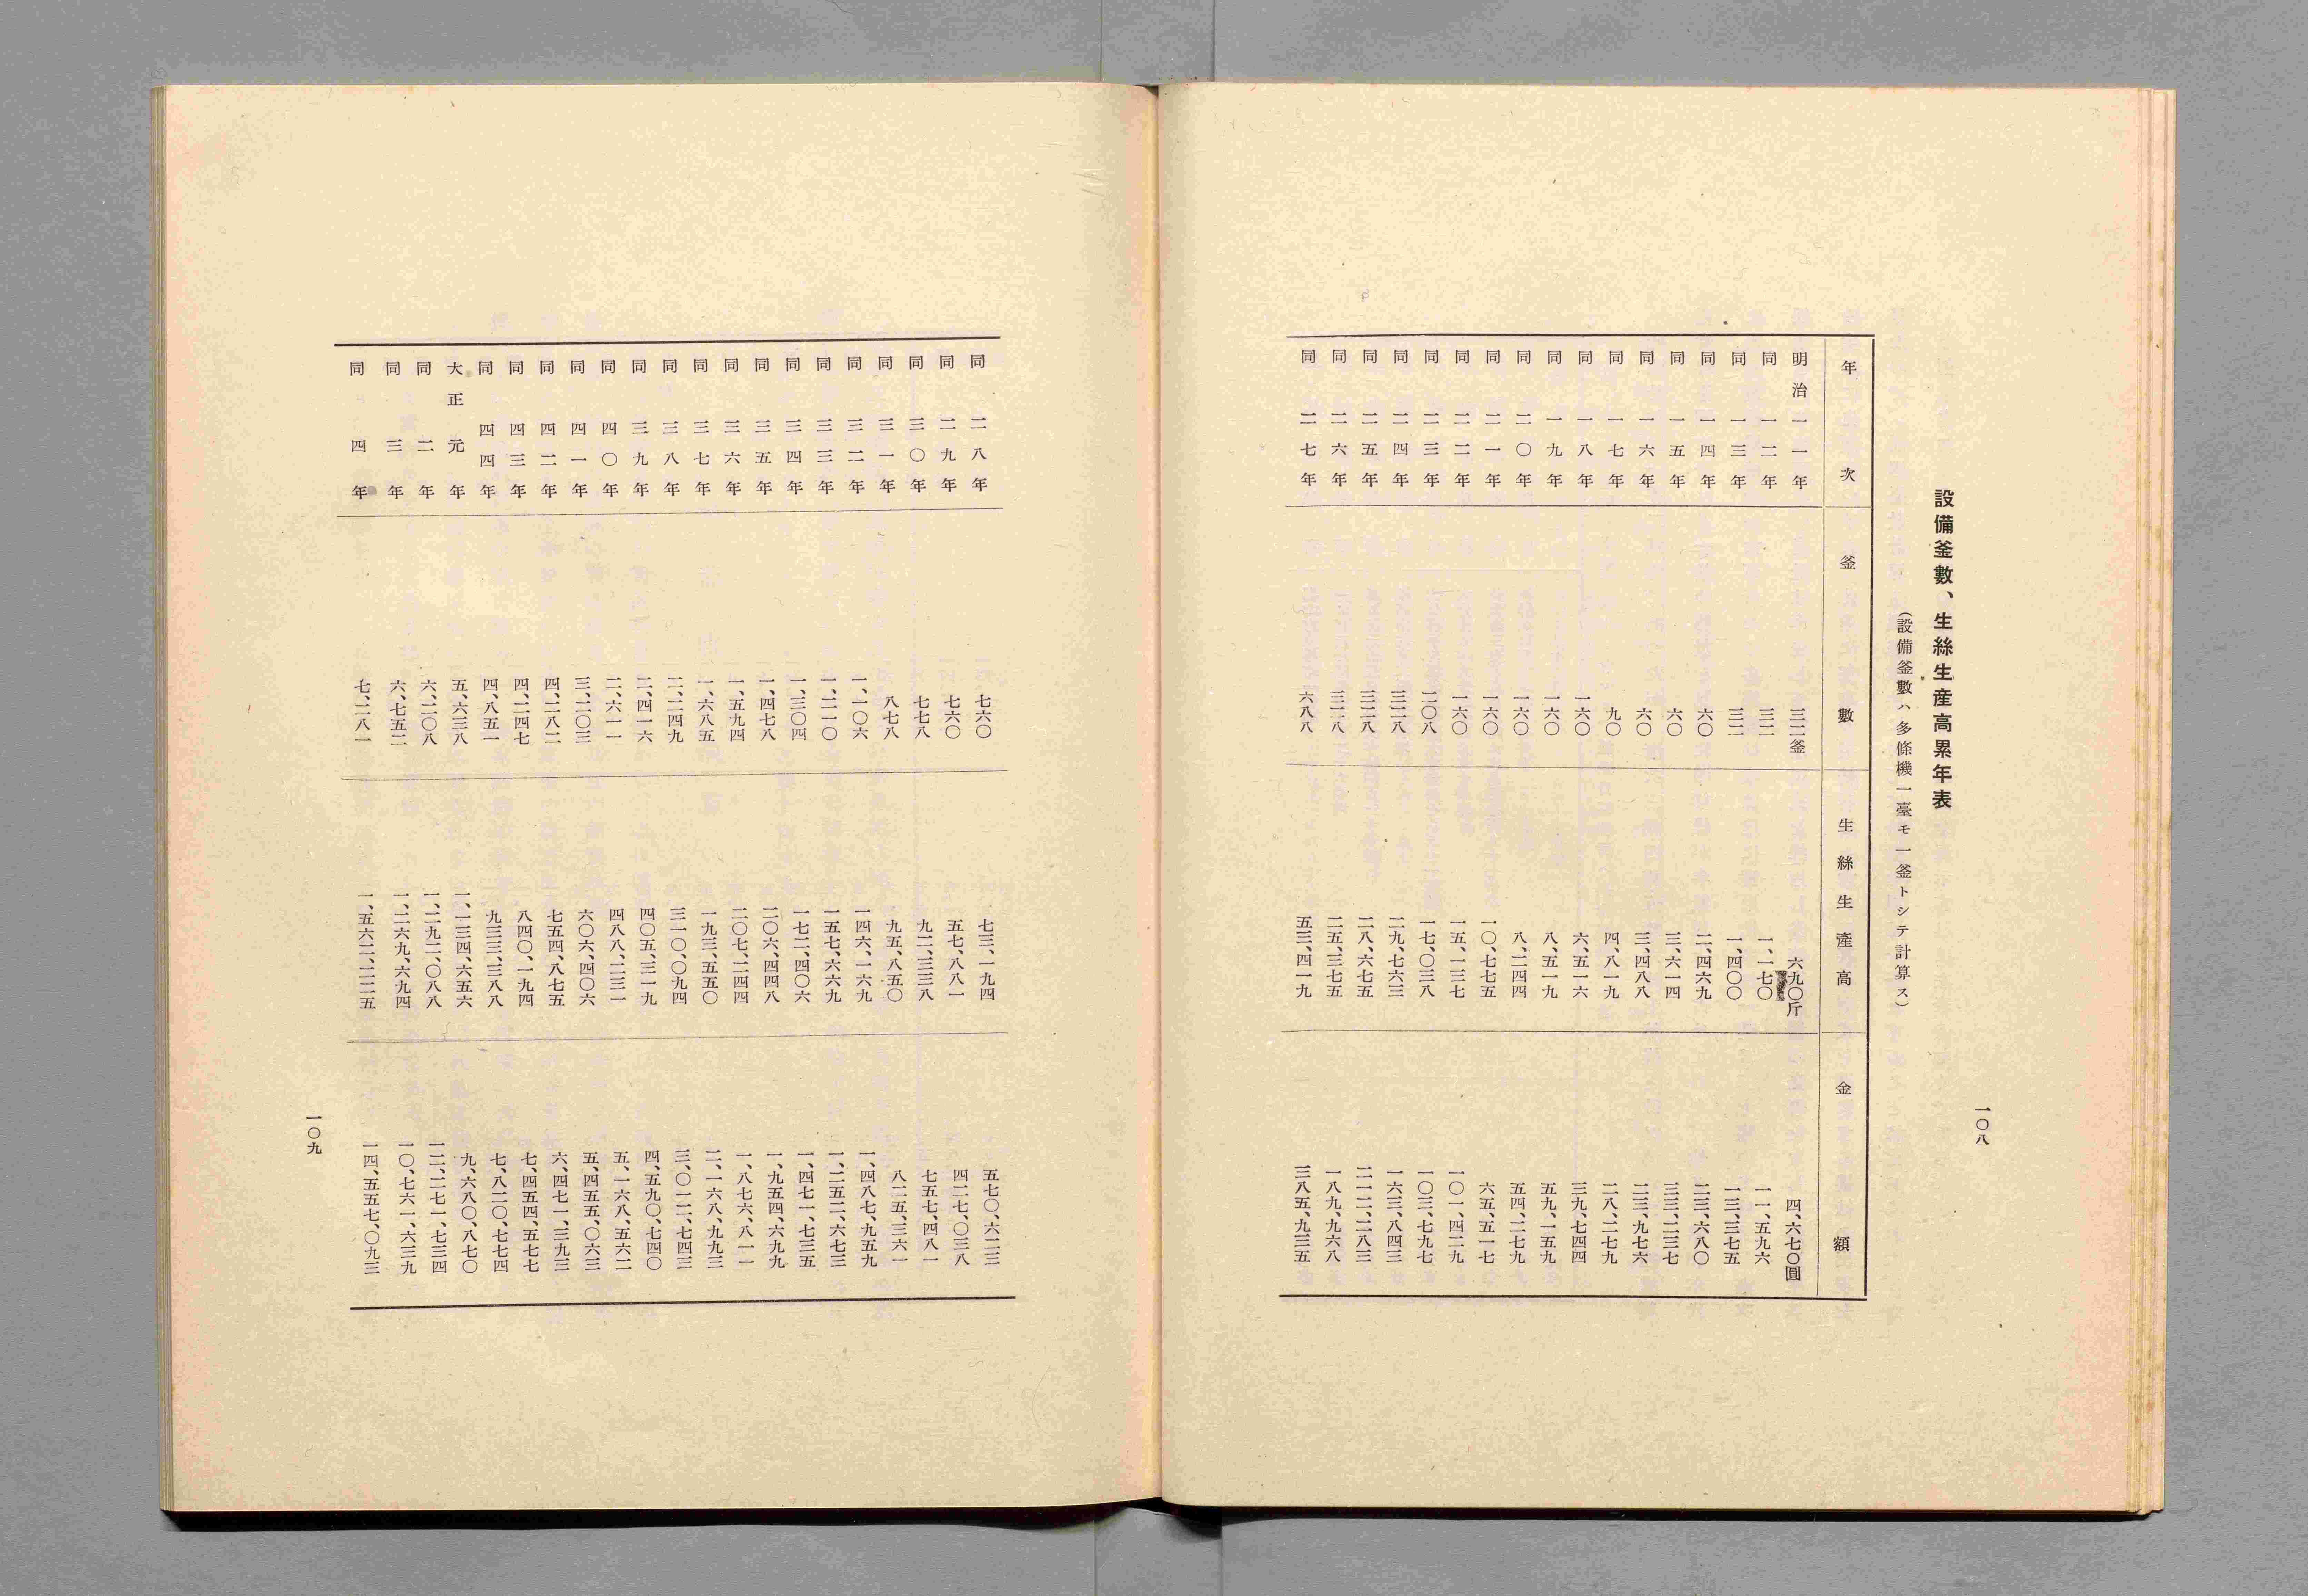 設備釜數、生絲生産高累年表
（設備釜數ハ多條機一臺モ一釜トシテ計算ス）
年次 釜數 生絲生産高 金額
明治一一年 三二釜 六九〇斤 四、六七〇圓
同一二年 三二 一、一七〇 一一、五九六
同一三年 三二 一、四〇〇 一三、三七五
同一四年 六〇 二、四六九 二三、六八〇
同一五年 六〇 三、六一四 三三、二三七
同一六年 六〇 三、四八八 二三、九七六
同一七年 九〇 四、八一九 二八、二七九
同一八年 一六〇 六、五一六 三九、七四四
同一九年 一六〇 八、五一九 五九、一五九
同二〇年 一六〇 八、二四四 五四、二七九
同二一年 一六〇 一〇、七七五 六五、五一七
同二二年 一六〇 一五、一三七 一〇一、四二九
同二三年 二〇八 一七、〇三八 一〇三、七九七
同二四年 三二八 二九、七六三 一六三、八四三
同二五年 三二八 二八、六七五 二一二、二八三
同二六年 三二八 二五、三七五 一八九、九六八
同二七年 六八八 五三、四一九 三八五、九三五
一〇八
同二八年 七六〇 七三、一九四 五七〇、六二三
同二九年 七六〇 五七、八八一 四二七、〇三八
同三〇年 七七八 九二、三三八 七五七、四八一
同三一年 八七八 九五、八五〇 八二五、三六一
同三二年 一、一〇六 一四六、一六九 一、四八七、九五九
同三三年 一、二一〇 一五七、六六九 一、二五二、六七三
同三四年 一、三〇四 一七二、四〇六 一、四七一、七三五
同三五年 一、四七八 二〇六、四四八 一、九五四、六九九
同三六年 一、五九四 二〇七、二四四 一、八七六、八一一
同三七年 一、六八五 一九三、五五〇 二、一六八、九九三
同三八年 二、二四九 三一〇、〇九四 三、〇一二、七四三
同三九年 二、四一六 四〇五、三一九 四、五九〇、七四〇
同四〇年 二、六一一 四八八、二三一 五、一六八、五六二
同四一年 三、二〇三 六〇六、四〇六 五、四五五、〇六三
同四二年 四、二八二 七五四、八七五 六、四七一、三九三
同四三年 四、二四七 八四〇、一九四 七、四五四、五七七
同四四年 四、八五一 九三三、三八八 七、八二〇、七七四
大正元年 五、六三八 一、一三四、六五六 九、六八〇、八七〇
同二年 六、二〇八 一、二九二、〇八八 一二、二七一、七三四
同三年 六、七五二 一、二六九、六九四 一〇、七六一、六三九
同四年 七、二八一 一、五六二、二二五 一四、五五七、〇九三
一〇九